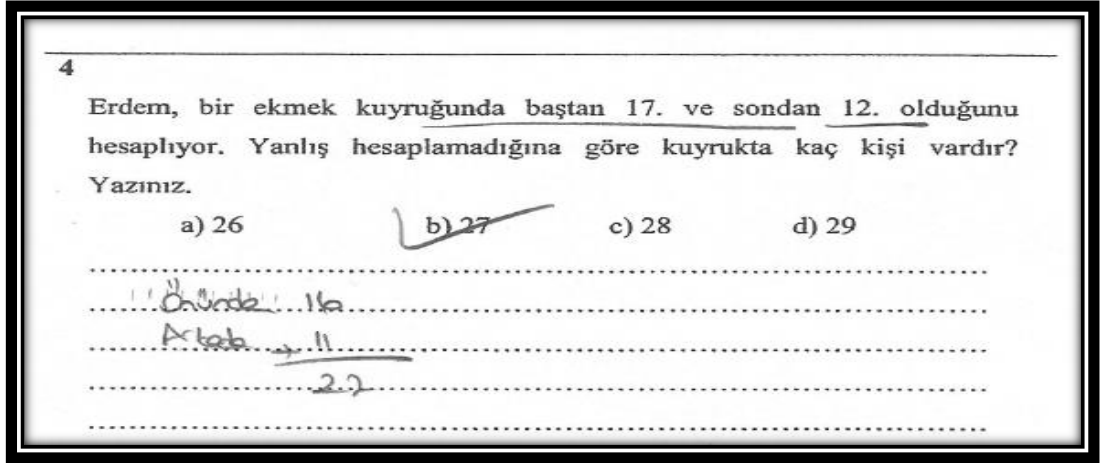 4
Erdem, bir ekmek kuyruğunda baştan 17. ve sondan 12. olduğunu
hesaplıyor. Yanlış hesaplamadığına göre kuyrukta kaç kişi vardır?
Yazınız.
a) 26 b) 27 c) 28 d) 29
Önünde 16
+ 11
27